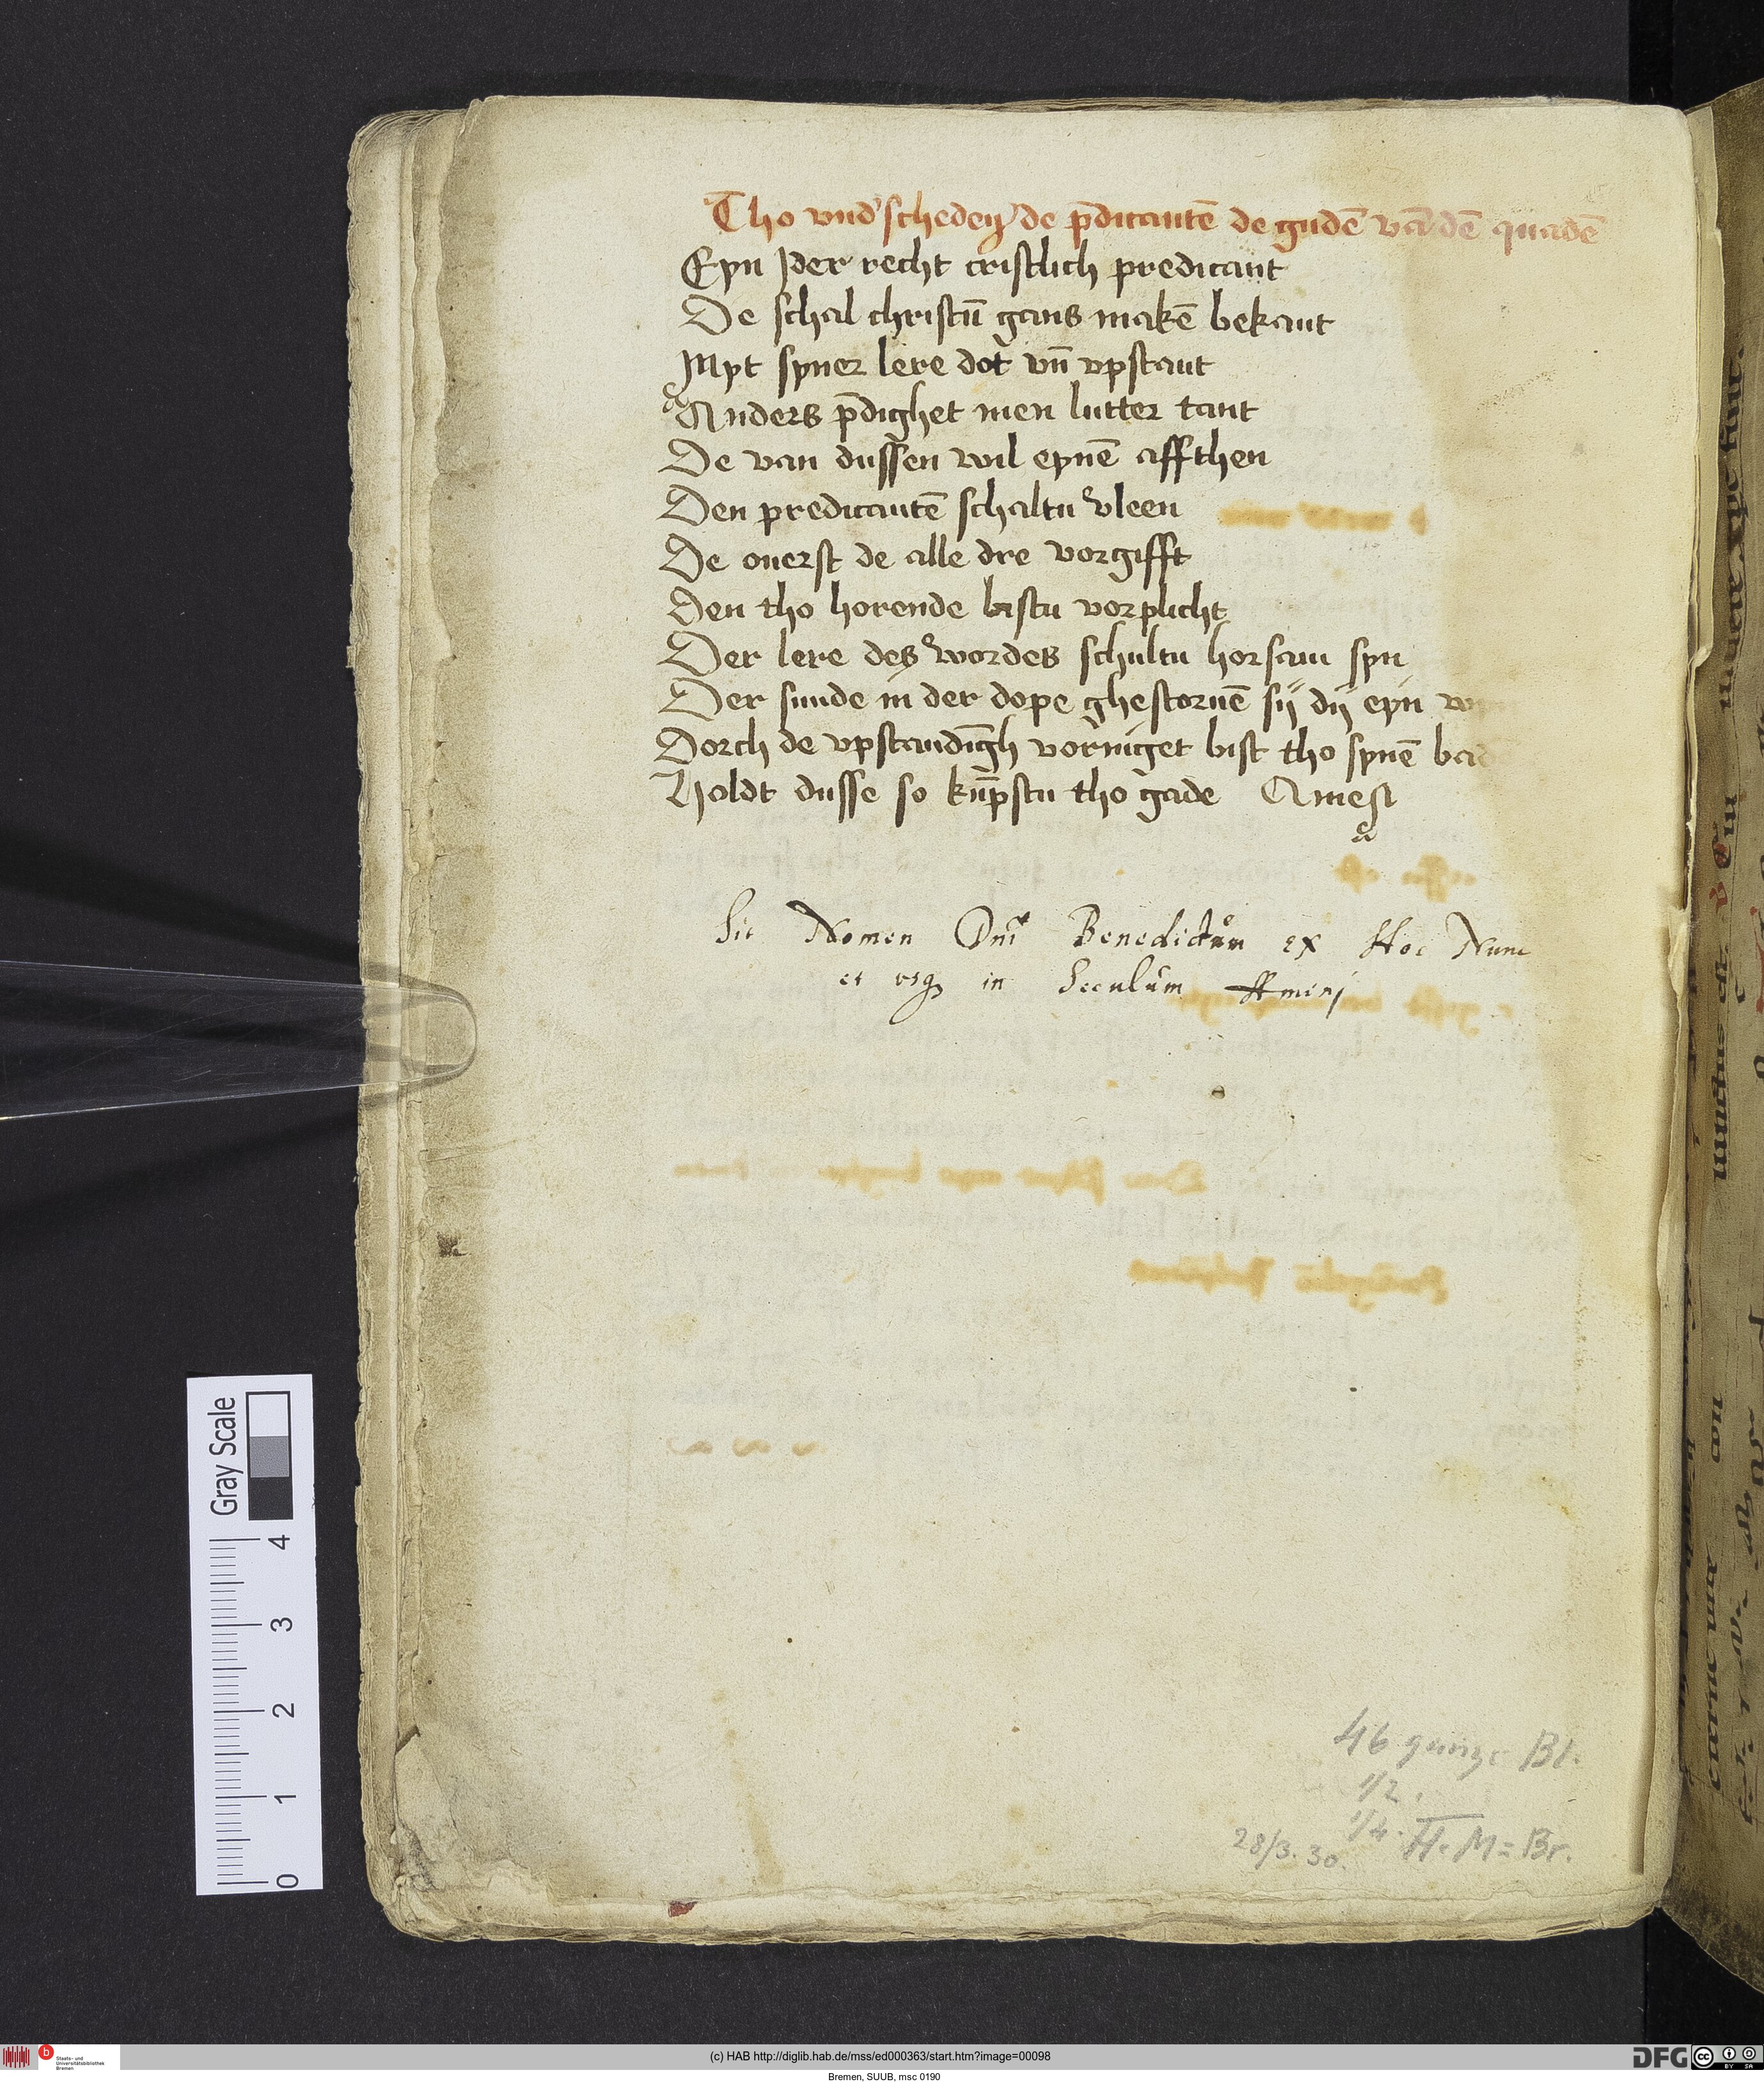 Tho vnd'scheden de p̄dicantē de gudē vā dē quadē
Eyn Jder recht cristlich predicant
De schal christū gans makē bekant
Myt syner lere dot vn̄ vpstant
Anders p̄dighet men lutter tant
De van dussen wil eynē affthen
Den predicantē schaltu vleen
De ouerst de alle dre vorgifft
Den tho horende bistu vorplicht
Der lere des wordes schultu horsam syn
Der sunde in der dope ghestoruē sij dij eyn
Dorch de vpstandīgh vorniget bist tho synē
Holdt dusse so kūpstu tho gade Amen
Sit Nomen Dn̄i Benedictum ex Hoc Nunc
et vsq in Seculum Amen
46 ganze Bl.
1/2.
1/4. H. M=Br.
28/3. 30.
Gray Scale
4
3
2
1
0
b Staats- und Universitätsbibliothek Bremen
(c) HAB http://diglib.hab.de/mss/ed000363/start.htm?image=00098
DFG
cc BY SA
Bremen, SUUB, msc 0190